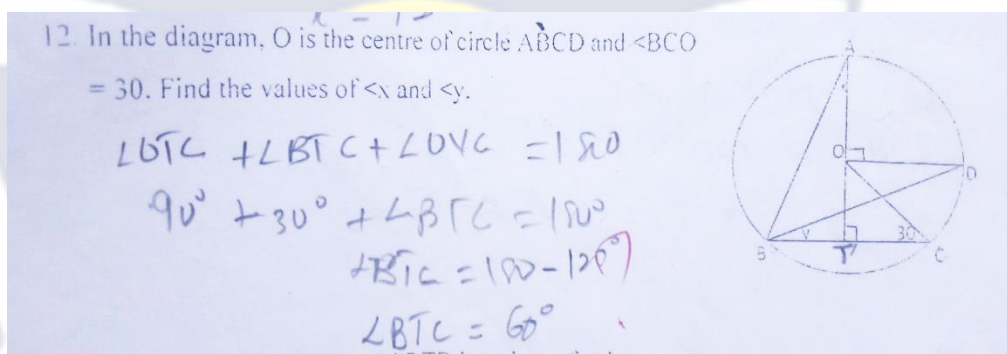 12. In the diagram, O is the centre of circle ABCD and <BCO
= 30. Find the values of <x and <y.
∠OTC + ∠BTC + ∠OYC = 180
90° + 30° + ∠BTC = 180°
∠BTC = 180 - 120°
∠BTC = 60°
A
O
D
B
y
T
30
C